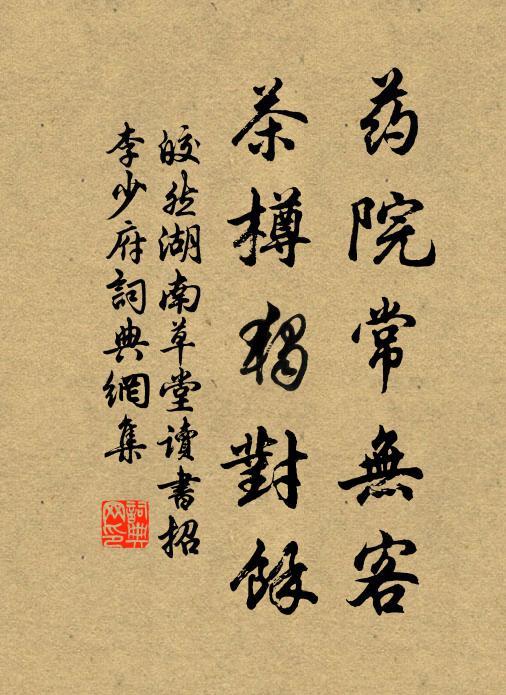 药院常無客
茶樽獨對餘
皎然湖南草堂讀書招
李少府詞典網集
詞典
网印